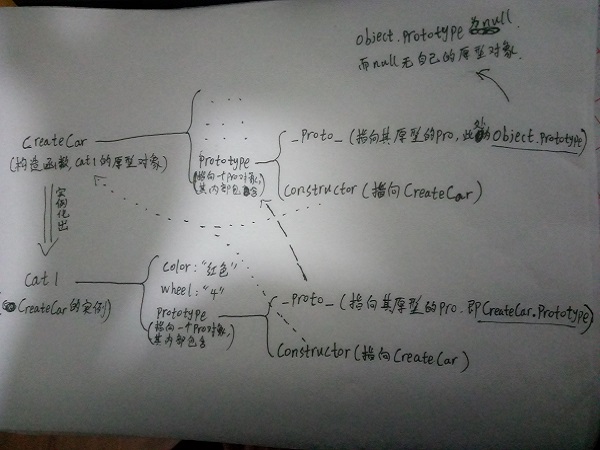 Object.Prototype 为null.
而null无自己的原型对象.
_Proto_(指向其原型的Pro,此处Object.Prototype)
CreateCar
(构造函数,Cat1的原型对象)
Prototype
(指向一个Pro对象,
其内部包含
Constructor(指向CreateCar)
实例化出
Cat1
CreateCar的实例)
Color:"红色"
wheel:"4"
Prototype
(指向一个Pro对象,
其内部包含
_Proto_(指向其原型的Pro.即CreateCar.Prototype)
Constructor(指向CreateCar)